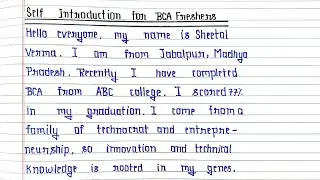 Self Introduction for BCA Freshers
Hello everyone, my name is Sheetal
Verma. I am from Jabalpur, Madhya
Pradesh. Recently I have completed
BCA from ABC college. I scored 77%
in my graduation. I come from a
family of technocrat and entrepre-
neurship, so innovation and technical
knowledge is rooted in my genes.